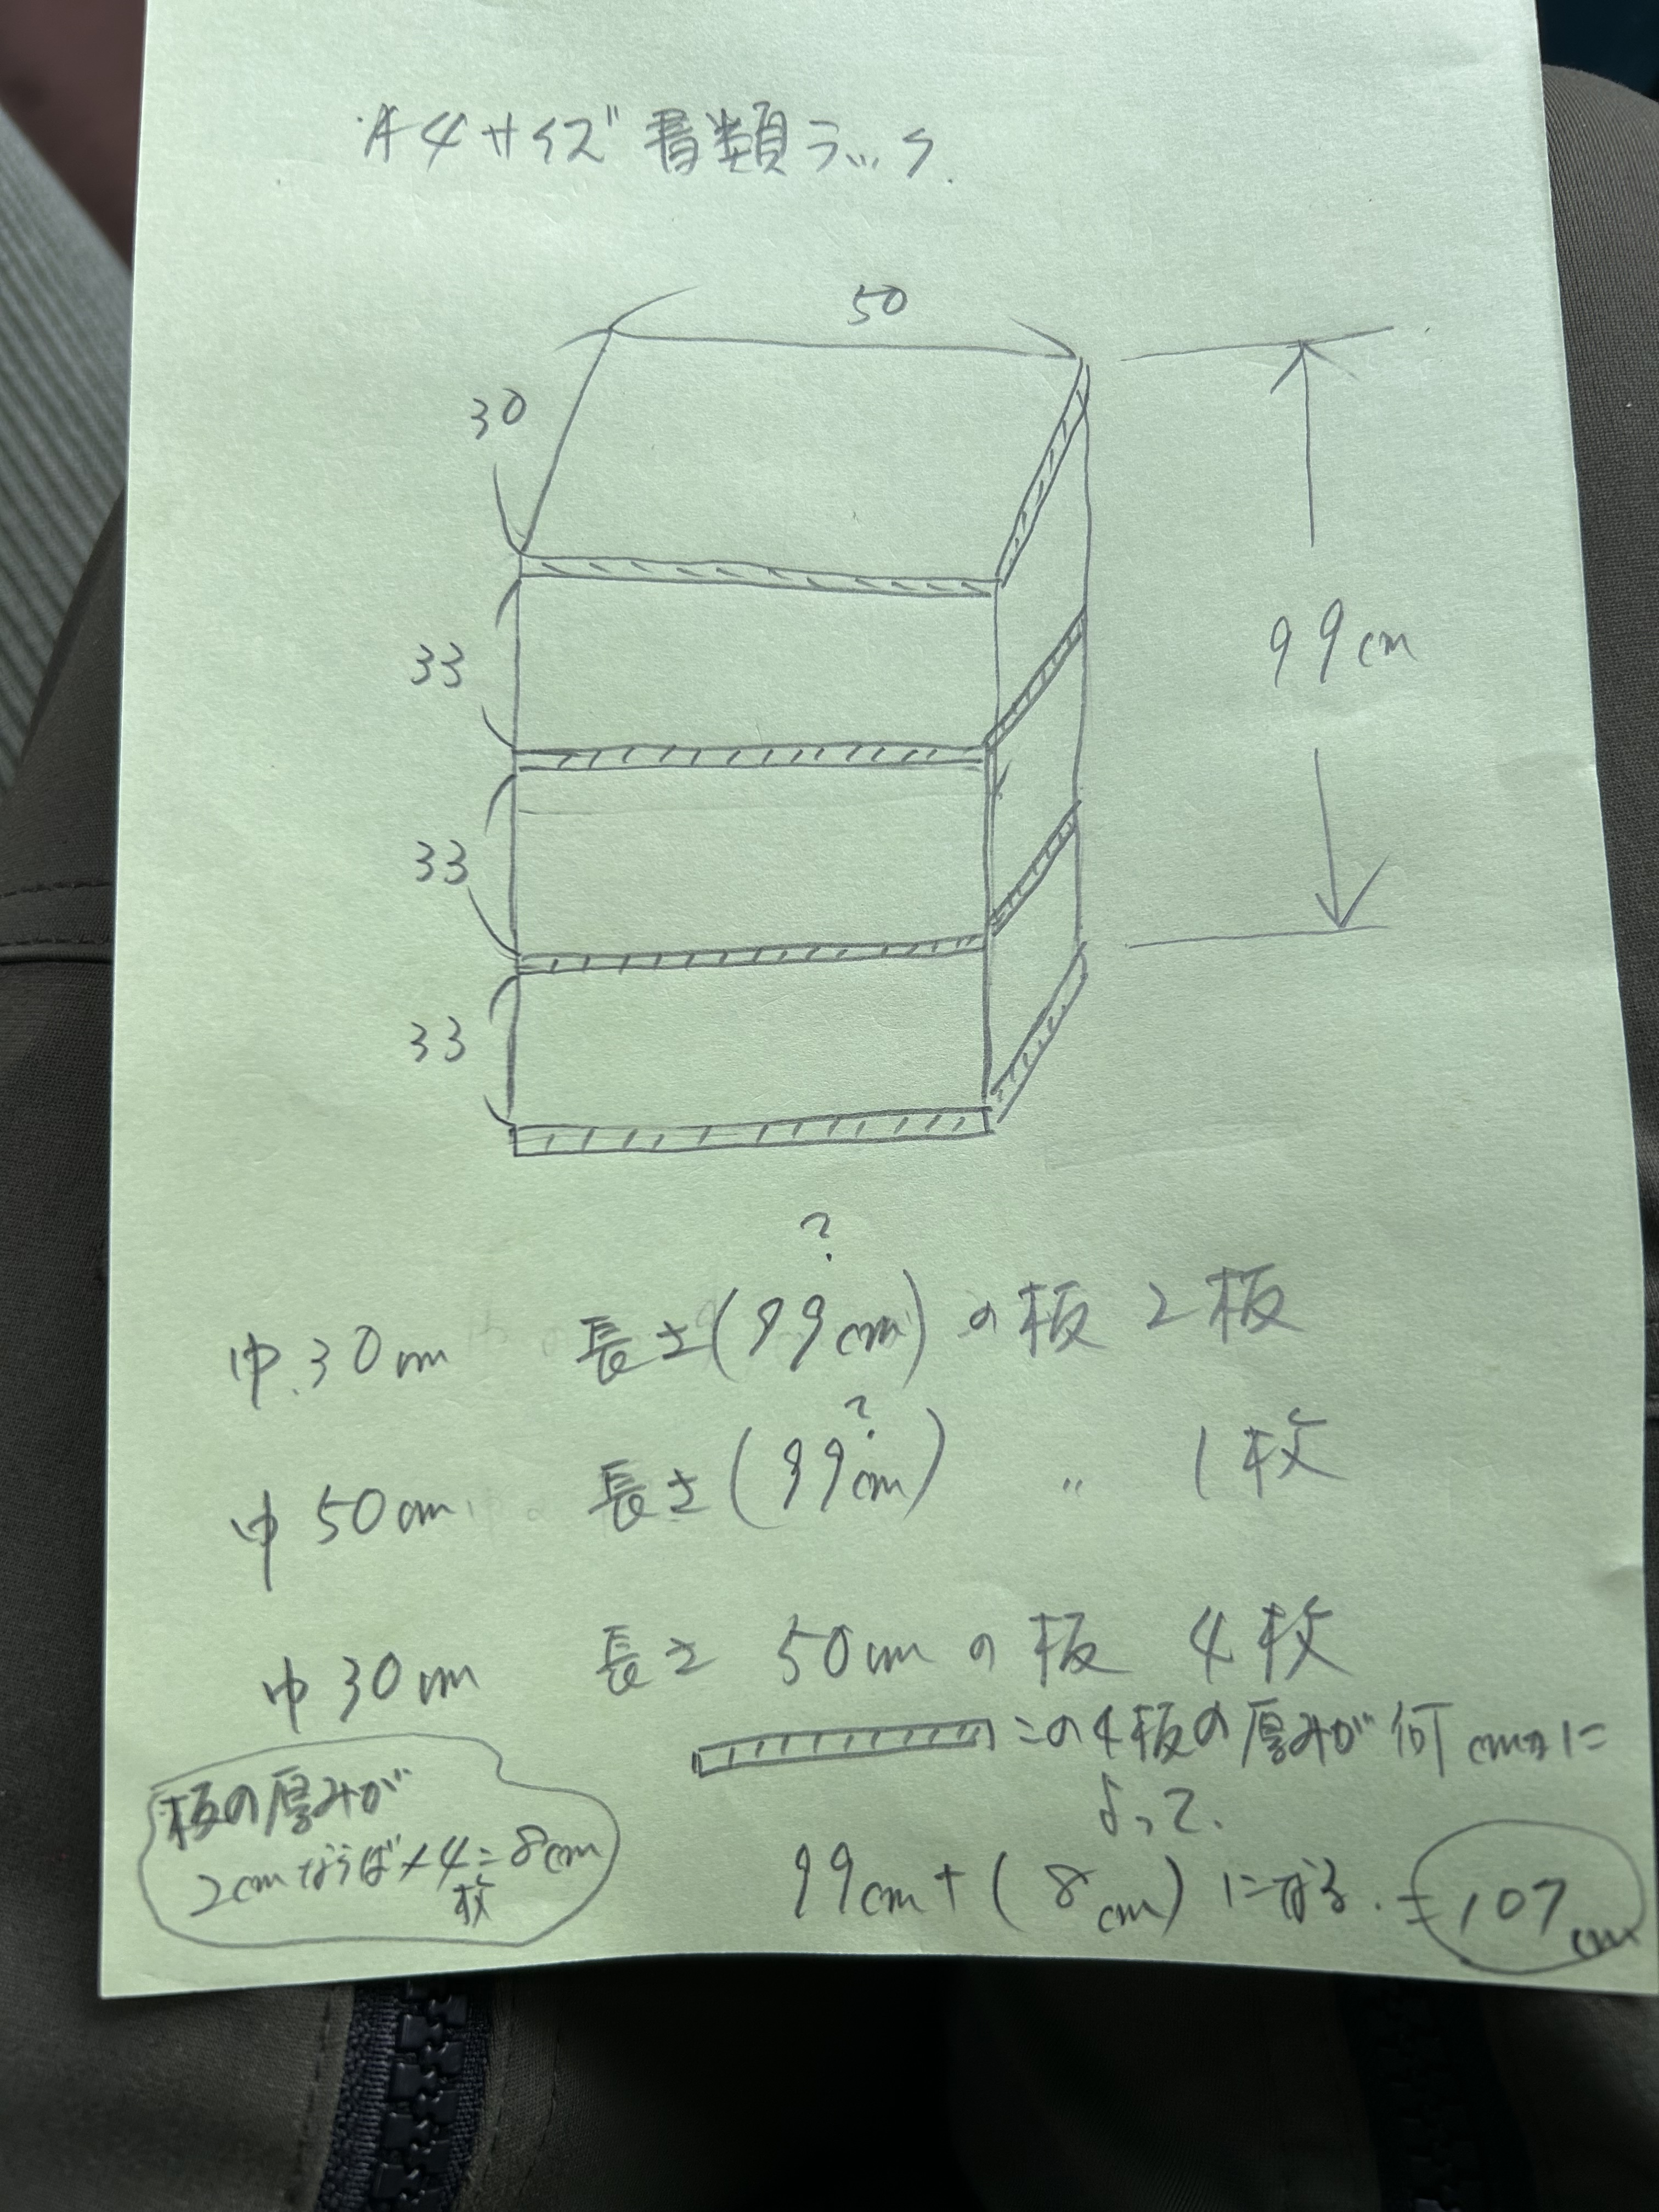 A4サイズ書類ラック.
50
30
33
99cm
33
33
?
巾.30cm 長さ(99cm)の板 2板
?
巾50cm 長さ(99cm) 〃 1枚
巾30cm 長さ 50cmの板 4枚
この4板の厚みが何cmかに
よって.
99cm+(8cm)になる.=107cm
板の厚みが
2cmならば×4=8cm
枚